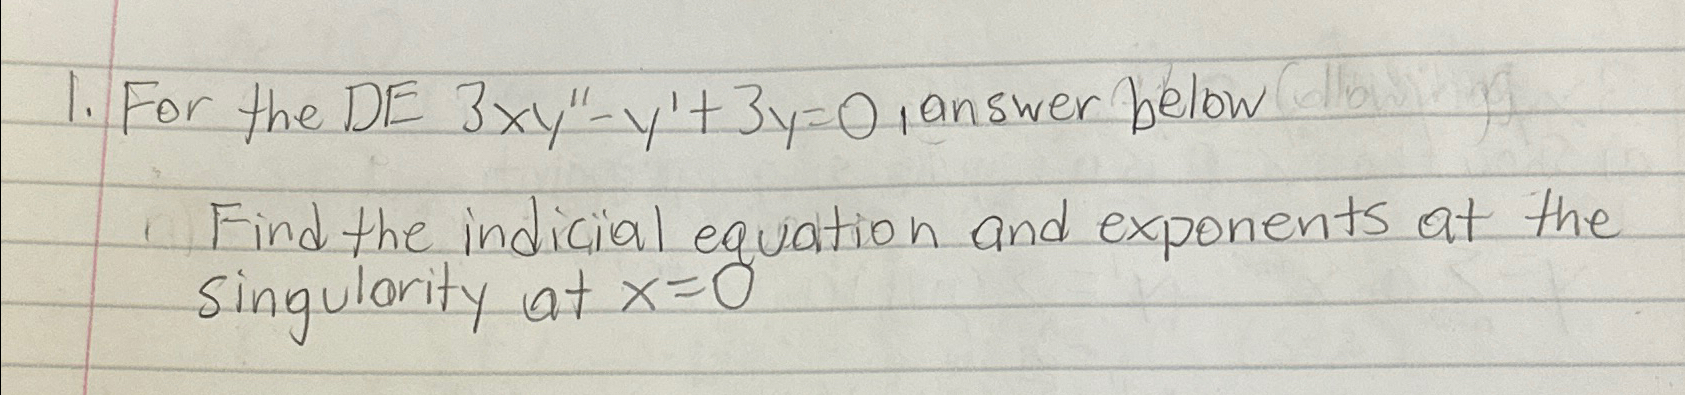 1. For the DE 3xy''-y'+3y=0, answer below
Find the indicial equation and exponents at the
singularity at x=0